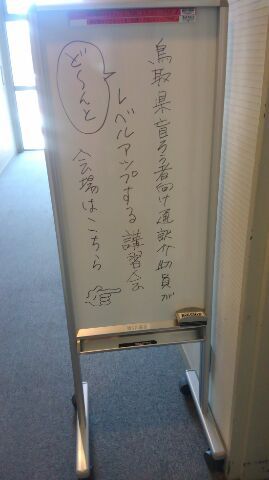 鳥取県盲ろう者向け通訳介助員が
レベルアップする講習会
ど〜んと
会場はこちら